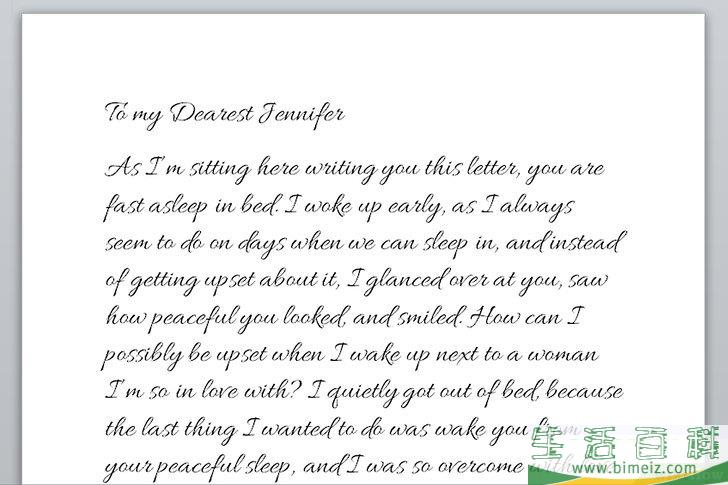 To my Dearest Jennifer
As I'm sitting here writing you this letter, you are
fast asleep in bed. I woke up early, as I always
seem to do on days when we can sleep in, and instead
of getting upset about it, I glanced over at you, saw
how peaceful you looked, and smiled. How can I
possibly be upset when I wake up next to a woman
I'm so in love with? I quietly got out of bed, because
the last thing I wanted to do was wake you from
your peaceful sleep, and I was so overcome with
生活百科
www.bimeiz.com